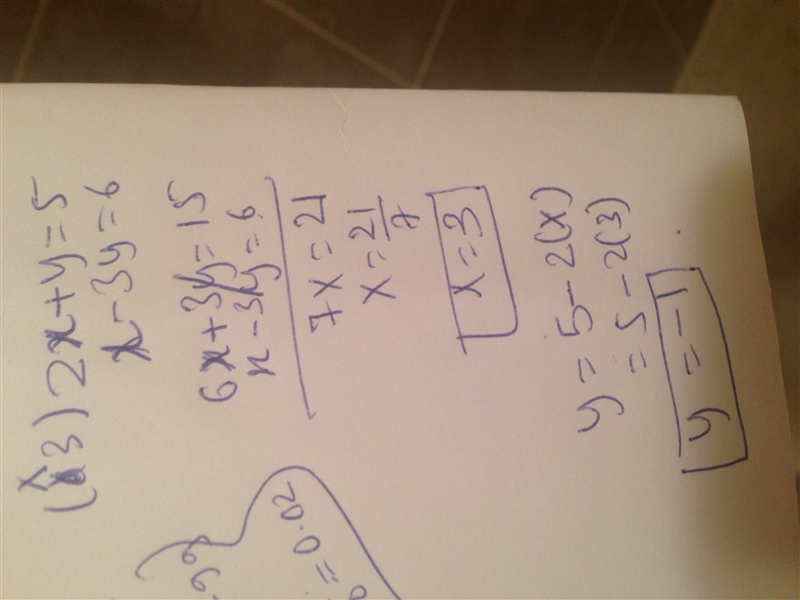 (x3) 2x+y=5
x-3y=6
6x+3y=15
x-3y=6
7x=21
x=21/7
x=3
y=5-2(x)
=5-2(3)
y=-1
=0.02